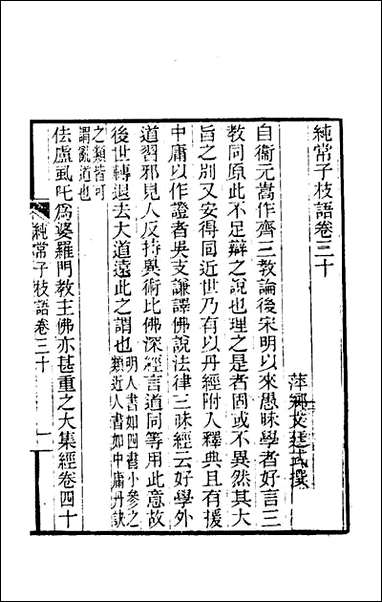 純常子枝語卷三十
萍鄉文廷式撰
自衞元嵩作齊三敎論後宋明以來愚昧學者好言三
敎同原此不足辯之說也理之是者固或不異然其大
旨之別又安得同近世乃有以丹經附入釋典且有援
中庸以作證者吳支謙譯佛說法律三昧經云好學外
道習邪見人反持異術比佛深經言道同等用此意故
後世轉退去大道遠此之謂也明人書如四書小參之類近人書如中庸丹訣
之類皆可謂亂道也
佉盧虱吒爲婆羅門敎主佛亦甚重之大集經卷四十
純常子枝語卷三十
一